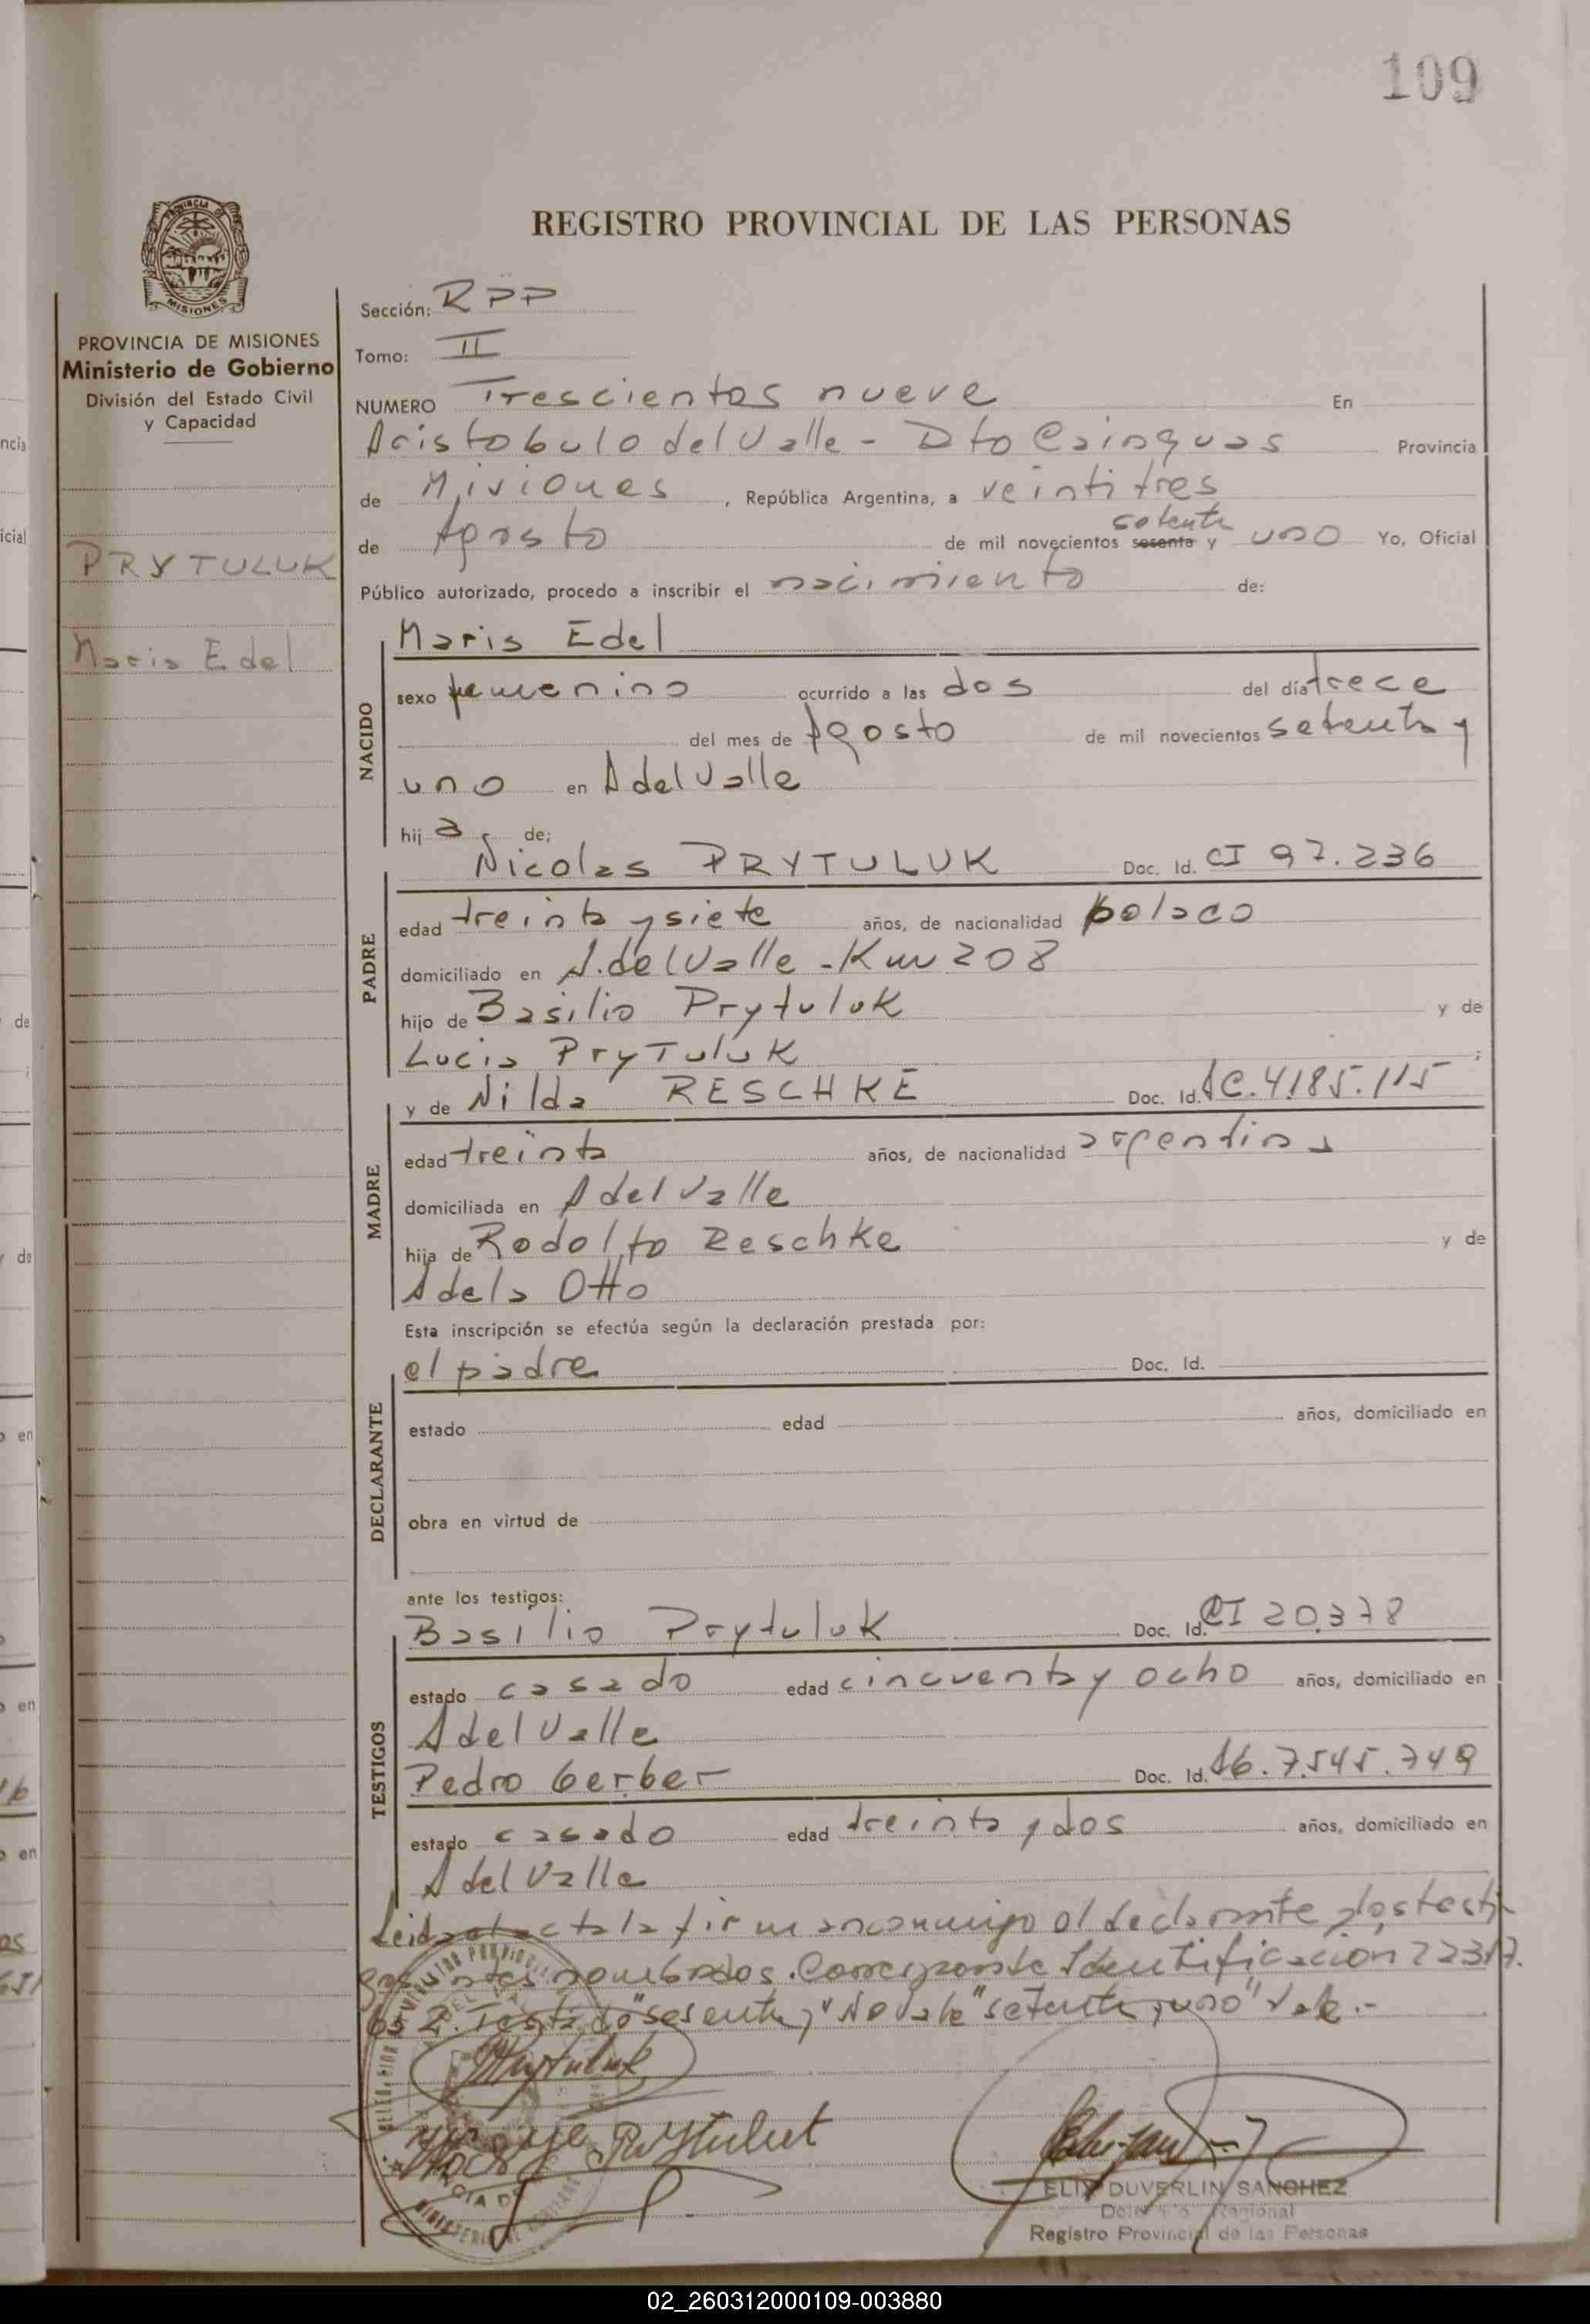 109
REGISTRO PROVINCIAL DE LAS PERSONAS
PROVINCIA DE MISIONES
Ministerio de Gobierno
División del Estado Civil
y Capacidad
PRYTULUK
Maris Edel
Sección: RPP
Tomo: II
NUMERO Trescientos nueve En
Aristobulo del Valle - Dto Cainguas Provincia
de Misiones, República Argentina, a veintitres
setenta
de Agosto de mil novecientos sesenta y uno Yo, Oficial
Público autorizado, procedo a inscribir el nacimiento de:
NACIDO
Maris Edel
sexo femenino ocurrido a las dos del día trece
del mes de Agosto de mil novecientos setenta y
uno en A del Valle
hija de:
PADRE
Nicolas PRYTULUK Doc. Id. CI 97.236
edad treinta y siete años, de nacionalidad polaco
domiciliado en A. del Valle - Km 208
hijo de Basilio Prytuluk y de
Lucia PryTuluk ;
MADRE
y de Nilda RESCHKE Doc. Id. LC. 4.185.115
edad treinta años, de nacionalidad argentina
domiciliada en A del Valle
hija de Rodolfo Reschke y de
Adela Otto
Esta inscripción se efectúa según la declaración prestada por:
DECLARANTE
el padre Doc. Id.
estado edad años, domiciliado en
obra en virtud de
ante los testigos:
TESTIGOS
Basilio Prytuluk Doc. Id. CI 20.378
estado casado edad cincuenta y ocho años, domiciliado en
A del Valle
Pedro Gerber Doc. Id. 7.545.749
estado casado edad treinta y dos años, domiciliado en
A del Valle
Leida el acta la firman conmigo el declarante y los testi
gos antes nombrados. Corresponde Identificación 22317.
652. Testado "sesenta y" No vale "setenta y uno" Vale.-
Prytuluk
ELIX DUVERLIN SANCHEZ
Delegado Regional
Registro Provincial de las Personas
02_260312000109-003880